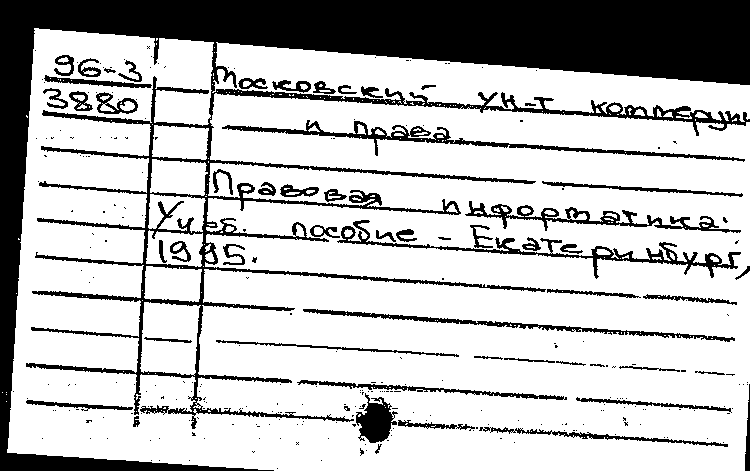 96-3
3880
Московский ун-т коммерции
и права.
Правовая информатика:
Учеб. пособие - Екатеринбург,
1995.